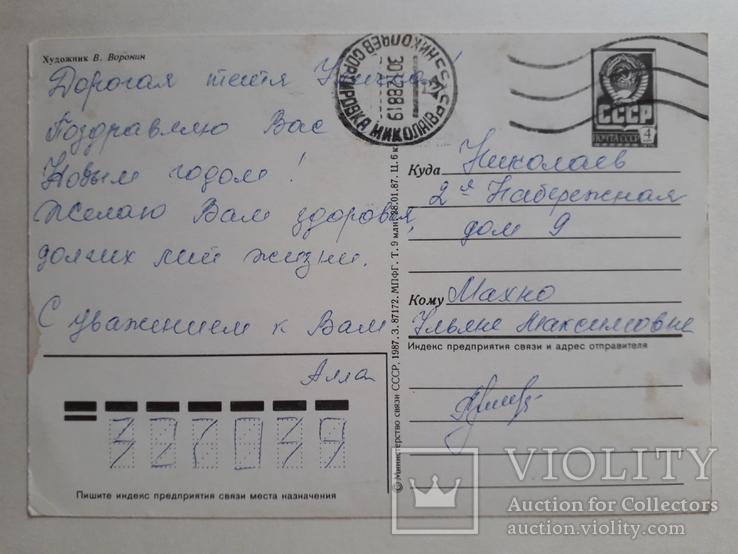 Художник В. Воронин
Дорогая тетя
Поздравляю Вас
Новым годом!
Желаю Вам здоровья,
долгих лий жизни.
С уважением к Вам
Алла
НИКОЛАЕВ СОРТИРОВКА МИКОЛАЇВ
30.12.88 19
СССР
ПОЧТА СССР
4
Куда Николаев
2я Набережная
дом 9
Кому Махно
Ульяне Максимовне
Индекс предприятия связи и адрес отправителя
327039
Пишите индекс предприятия связи места назначения
© Министерство связи СССР, 1987. З. 87172. МПФГ. Т. 9 млн. 28.01.87. Ц. 6 к.
VIOLITY
Auction for Collectors
auction.violity.com